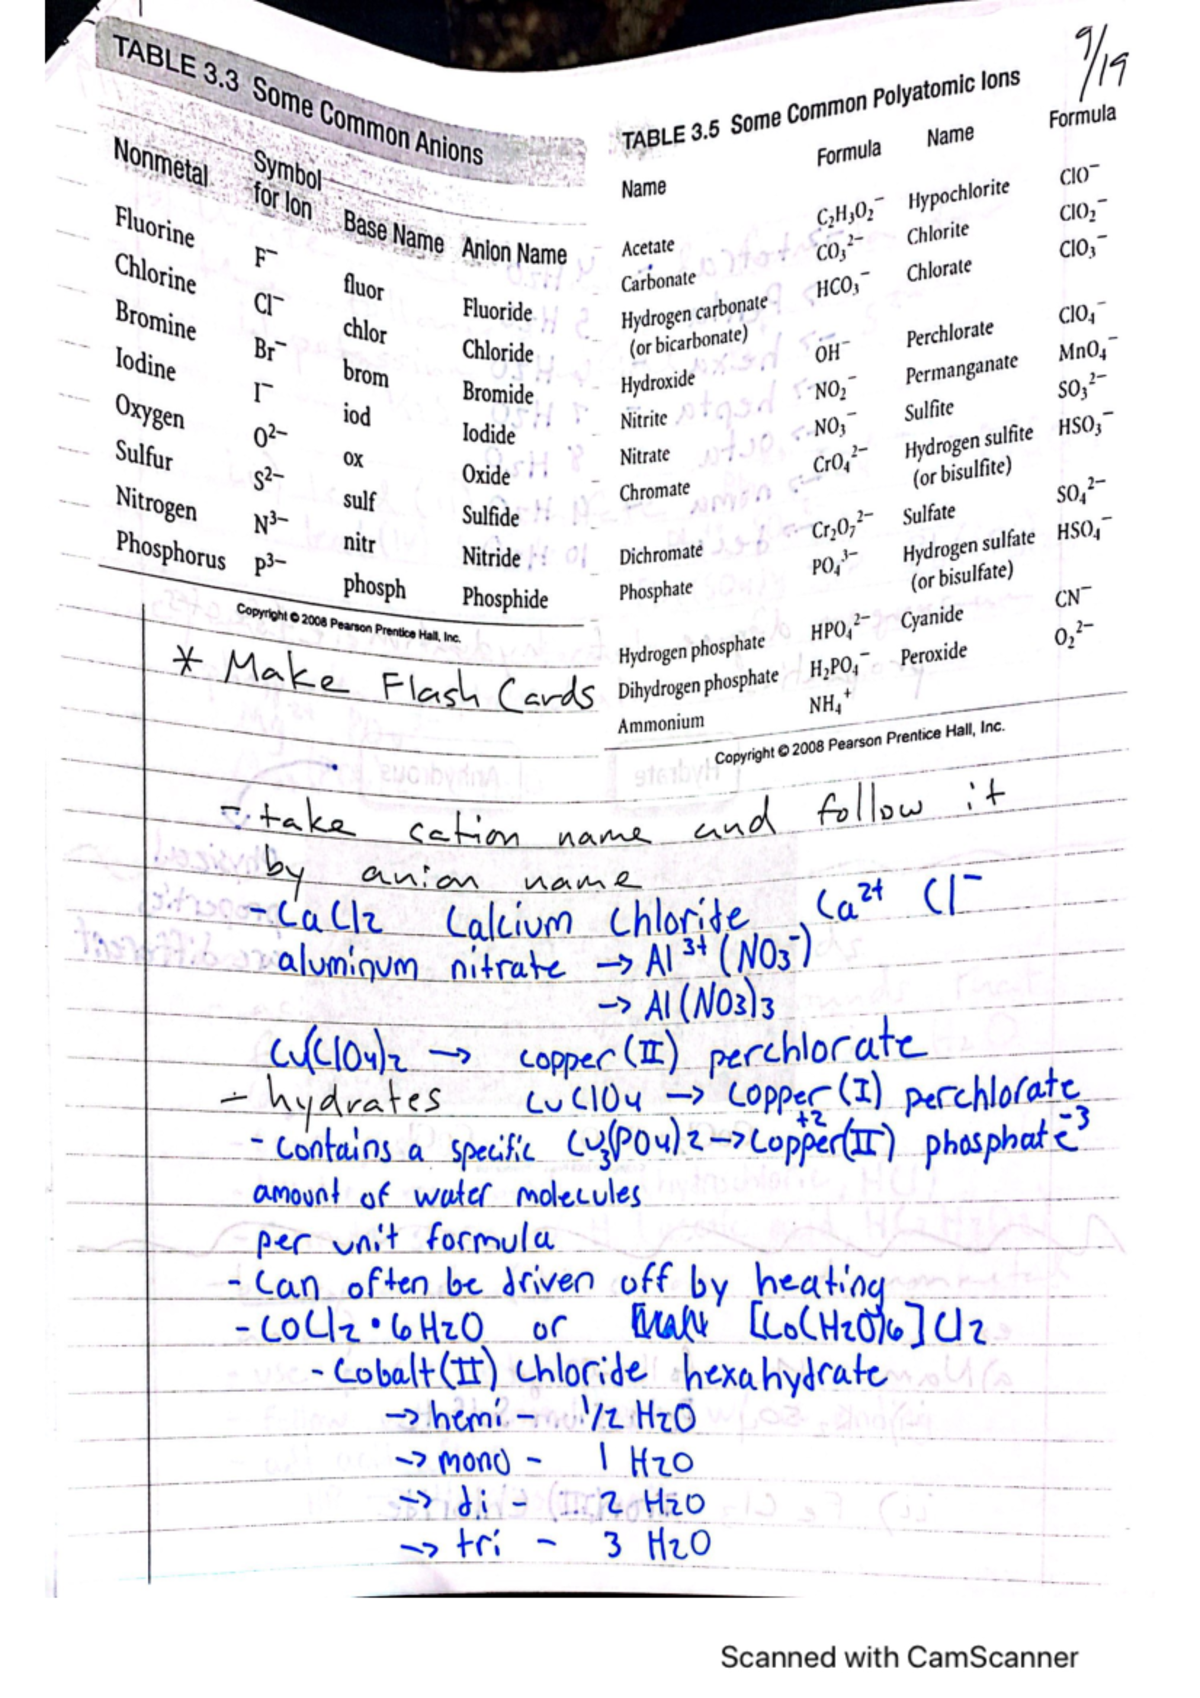 9/19
TABLE 3.3 Some Common Anions
Nonmetal Symbol for Ion Base Name Anion Name
Fluorine F⁻ fluor Fluoride
Chlorine Cl⁻ chlor Chloride
Bromine Br⁻ brom Bromide
Iodine I⁻ iod Iodide
Oxygen O²⁻ ox Oxide
Sulfur S²⁻ sulf Sulfide
Nitrogen N³⁻ nitr Nitride
Phosphorus P³⁻ phosph Phosphide
Copyright © 2008 Pearson Prentice Hall, Inc.
TABLE 3.5 Some Common Polyatomic Ions
Name Formula Name Formula
Acetate C₂H₃O₂⁻ Hypochlorite ClO⁻
Carbonate CO₃²⁻ Chlorite ClO₂⁻
Hydrogen carbonate HCO₃⁻ Chlorate ClO₃⁻
(or bicarbonate)
Hydroxide OH⁻ Perchlorate ClO₄⁻
Nitrite NO₂⁻ Permanganate MnO₄⁻
Nitrate NO₃⁻ Sulfite SO₃²⁻
Chromate CrO₄²⁻ Hydrogen sulfite HSO₃⁻
(or bisulfite)
Dichromate Cr₂O₇²⁻ Sulfate SO₄²⁻
Phosphate PO₄³⁻ Hydrogen sulfate HSO₄⁻
(or bisulfate)
Hydrogen phosphate HPO₄²⁻ Cyanide CN⁻
Dihydrogen phosphate H₂PO₄⁻ Peroxide O₂²⁻
Ammonium NH₄⁺
Copyright © 2008 Pearson Prentice Hall, Inc.
* Make Flash Cards
- take cation name and follow it
by anion name
- CaCl2 Calcium Chloride Ca²⁺ Cl⁻
aluminum nitrate → Al³⁺ (NO₃⁻)
→ Al(NO3)3
Cu(ClO4)2 → copper (II) perchlorate
- hydrates CuClO4 → Copper (I) perchlorate
- contains a specific Cu₃(PO4)2 → Copper(II) +2 phosphate -3
amount of water molecules
per unit formula
- Can often be driven off by heating
- CoCl2 • 6 H2O or [Co(H2O)6]Cl2
- Cobalt (II) chloride hexahydrate
→ hemi - 1/2 H2O
→ mono - 1 H2O
→ di - 2 H2O
→ tri - 3 H2O
Scanned with CamScanner